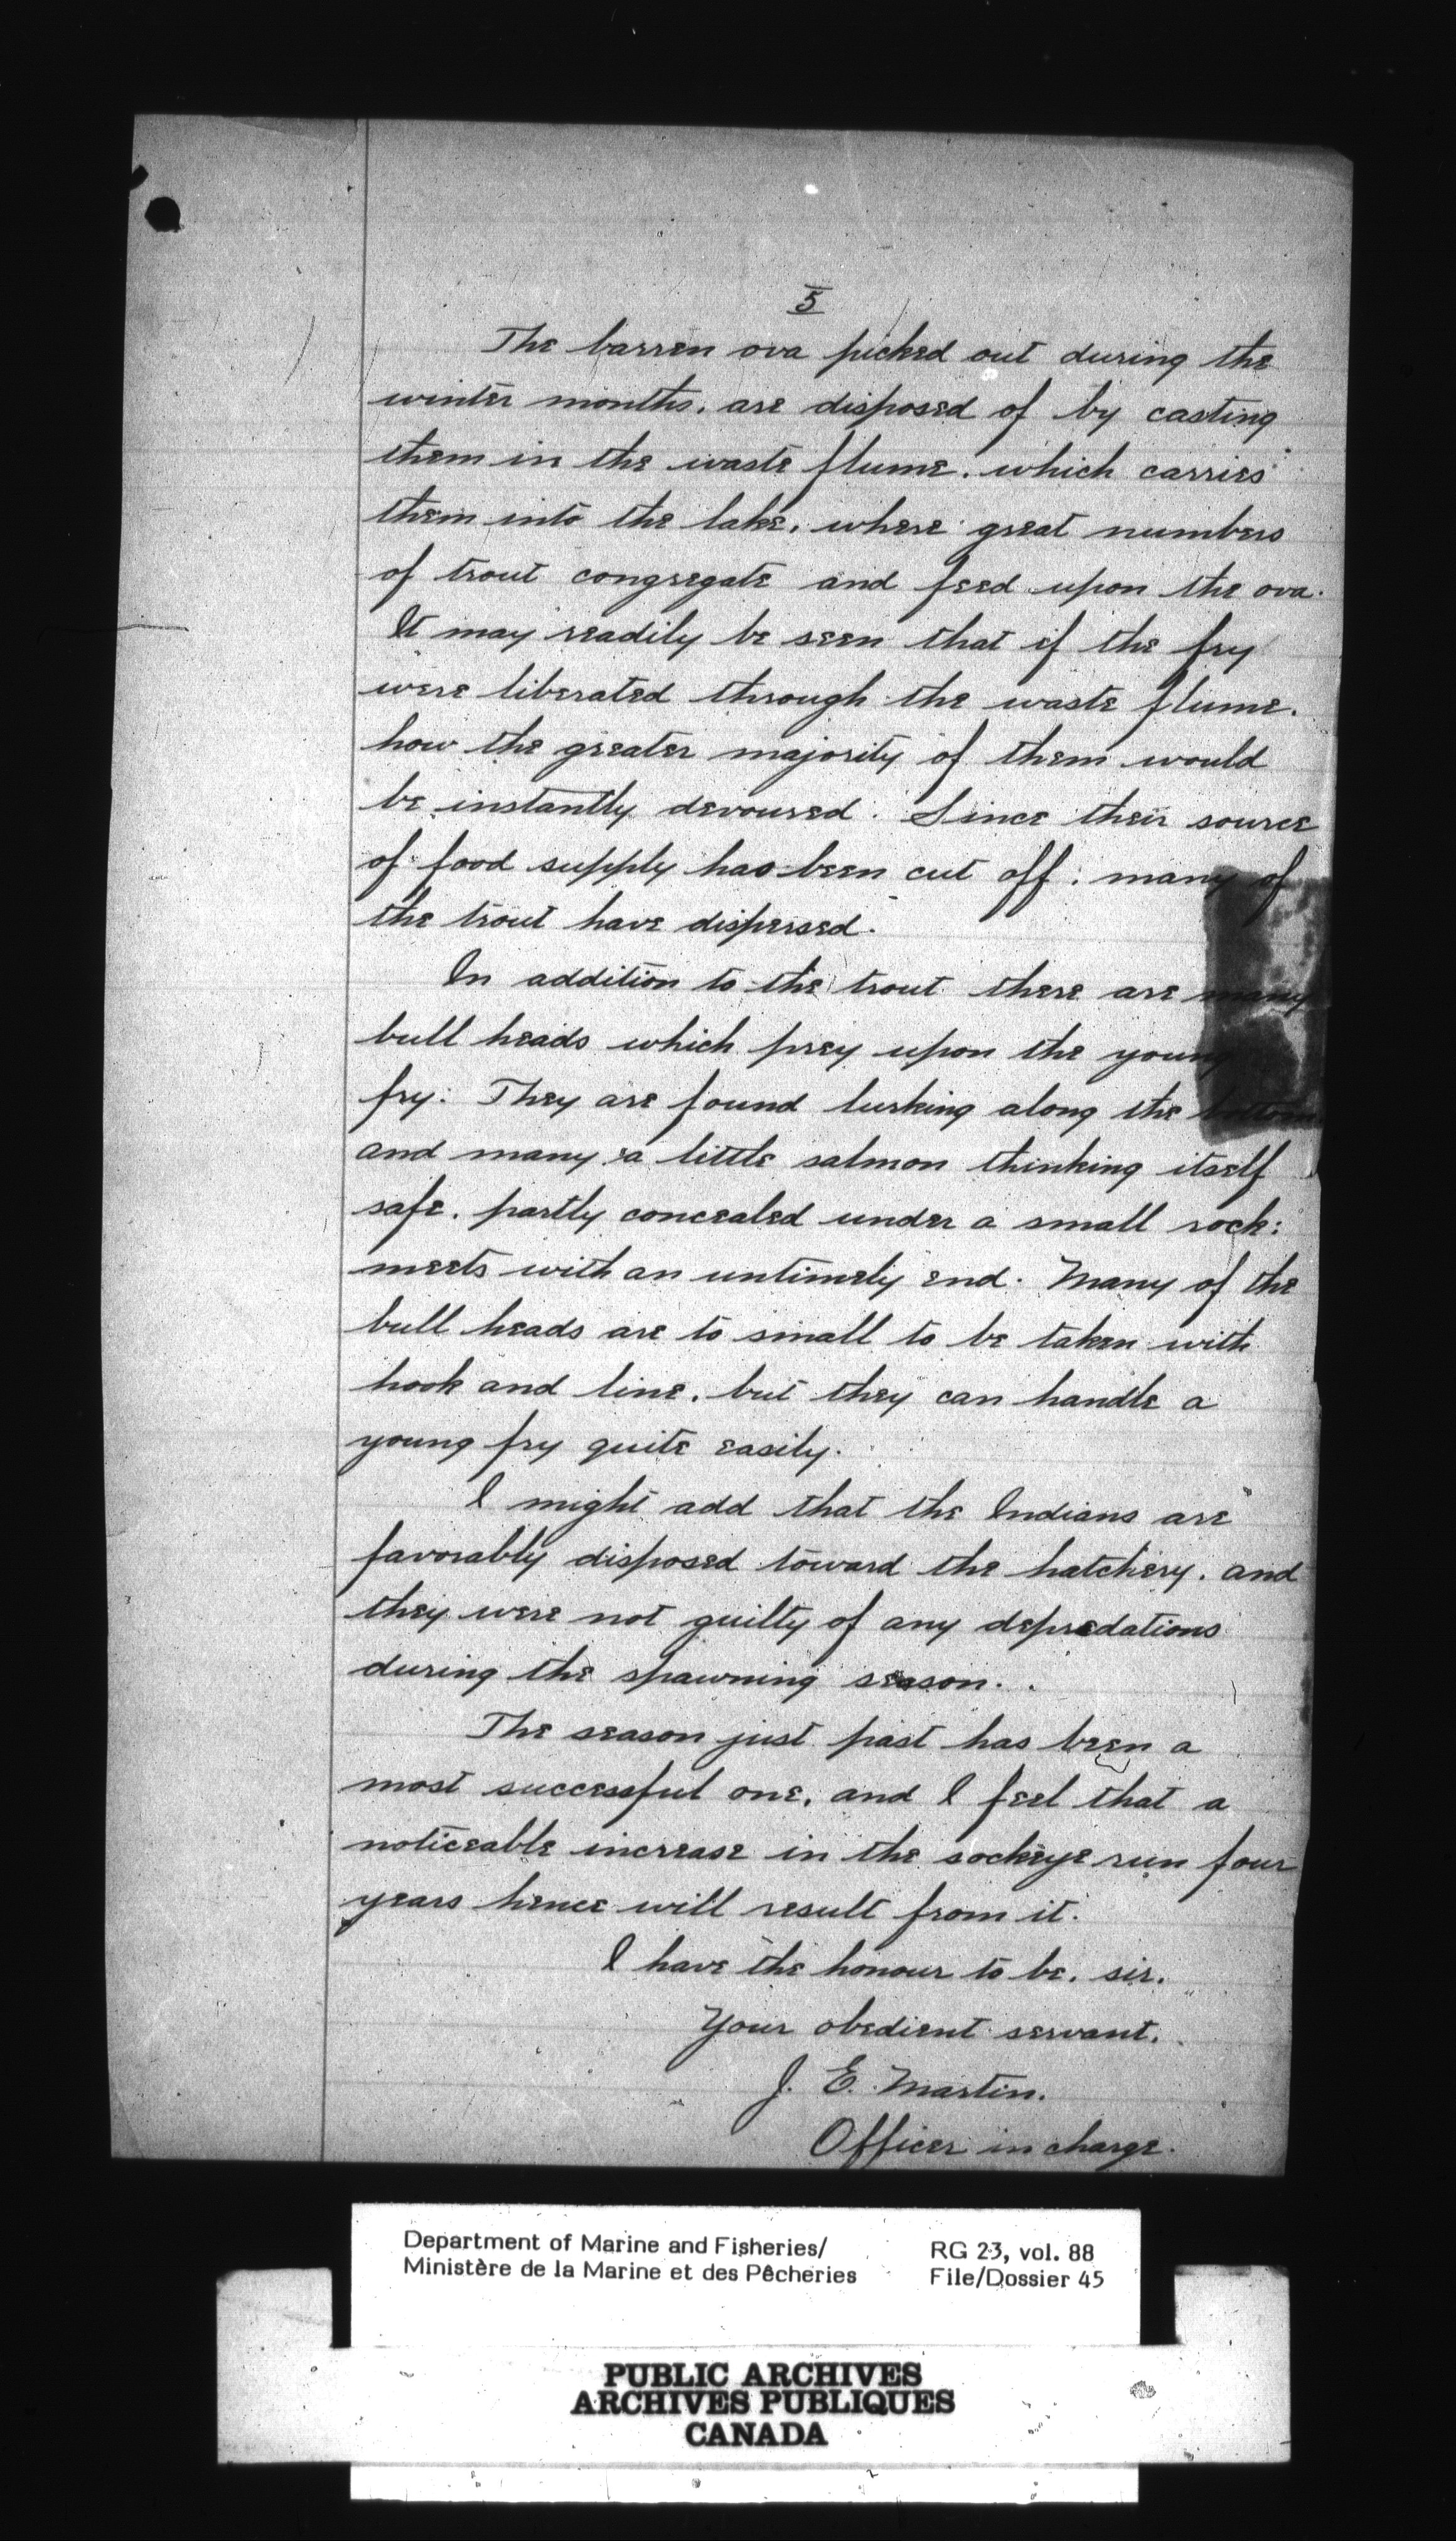 5
The barren ova picked out during the
winter months, are disposed of by casting
them in the waste flume, which carries
them into the lake, where great numbers
of trout congregate and feed upon the ova.
It may readily be seen that if the fry
were liberated through the waste flume,
how the greater majority of them would
be instantly devoured. Since their source
of food supply has been cut off, many of
the trout have dispersed.
In addition to the trout there are many
bull heads which prey upon the young
fry. They are found lurking along the bottom
and many a little salmon thinking itself
safe, partly concealed under a small rock,
meets with an untimely end. Many of the
bull heads are to small to be taken with
hook and line, but they can handle a
young fry quite easily.
I might add that the Indians are
favorably disposed toward the hatchery, and
they were not guilty of any depredations
during the spawning season.
The season just past has been a
most successful one, and I feel that a
noticeable increase in the sockeye run four
years hence will result from it.
I have the honour to be, sir,
Your obedient servant,
J. E. Martin.
Officer in charge.
Department of Marine and Fisheries/ RG 23, vol. 88
Ministère de la Marine et des Pêcheries File/Dossier 45
PUBLIC ARCHIVES
ARCHIVES PUBLIQUES
CANADA